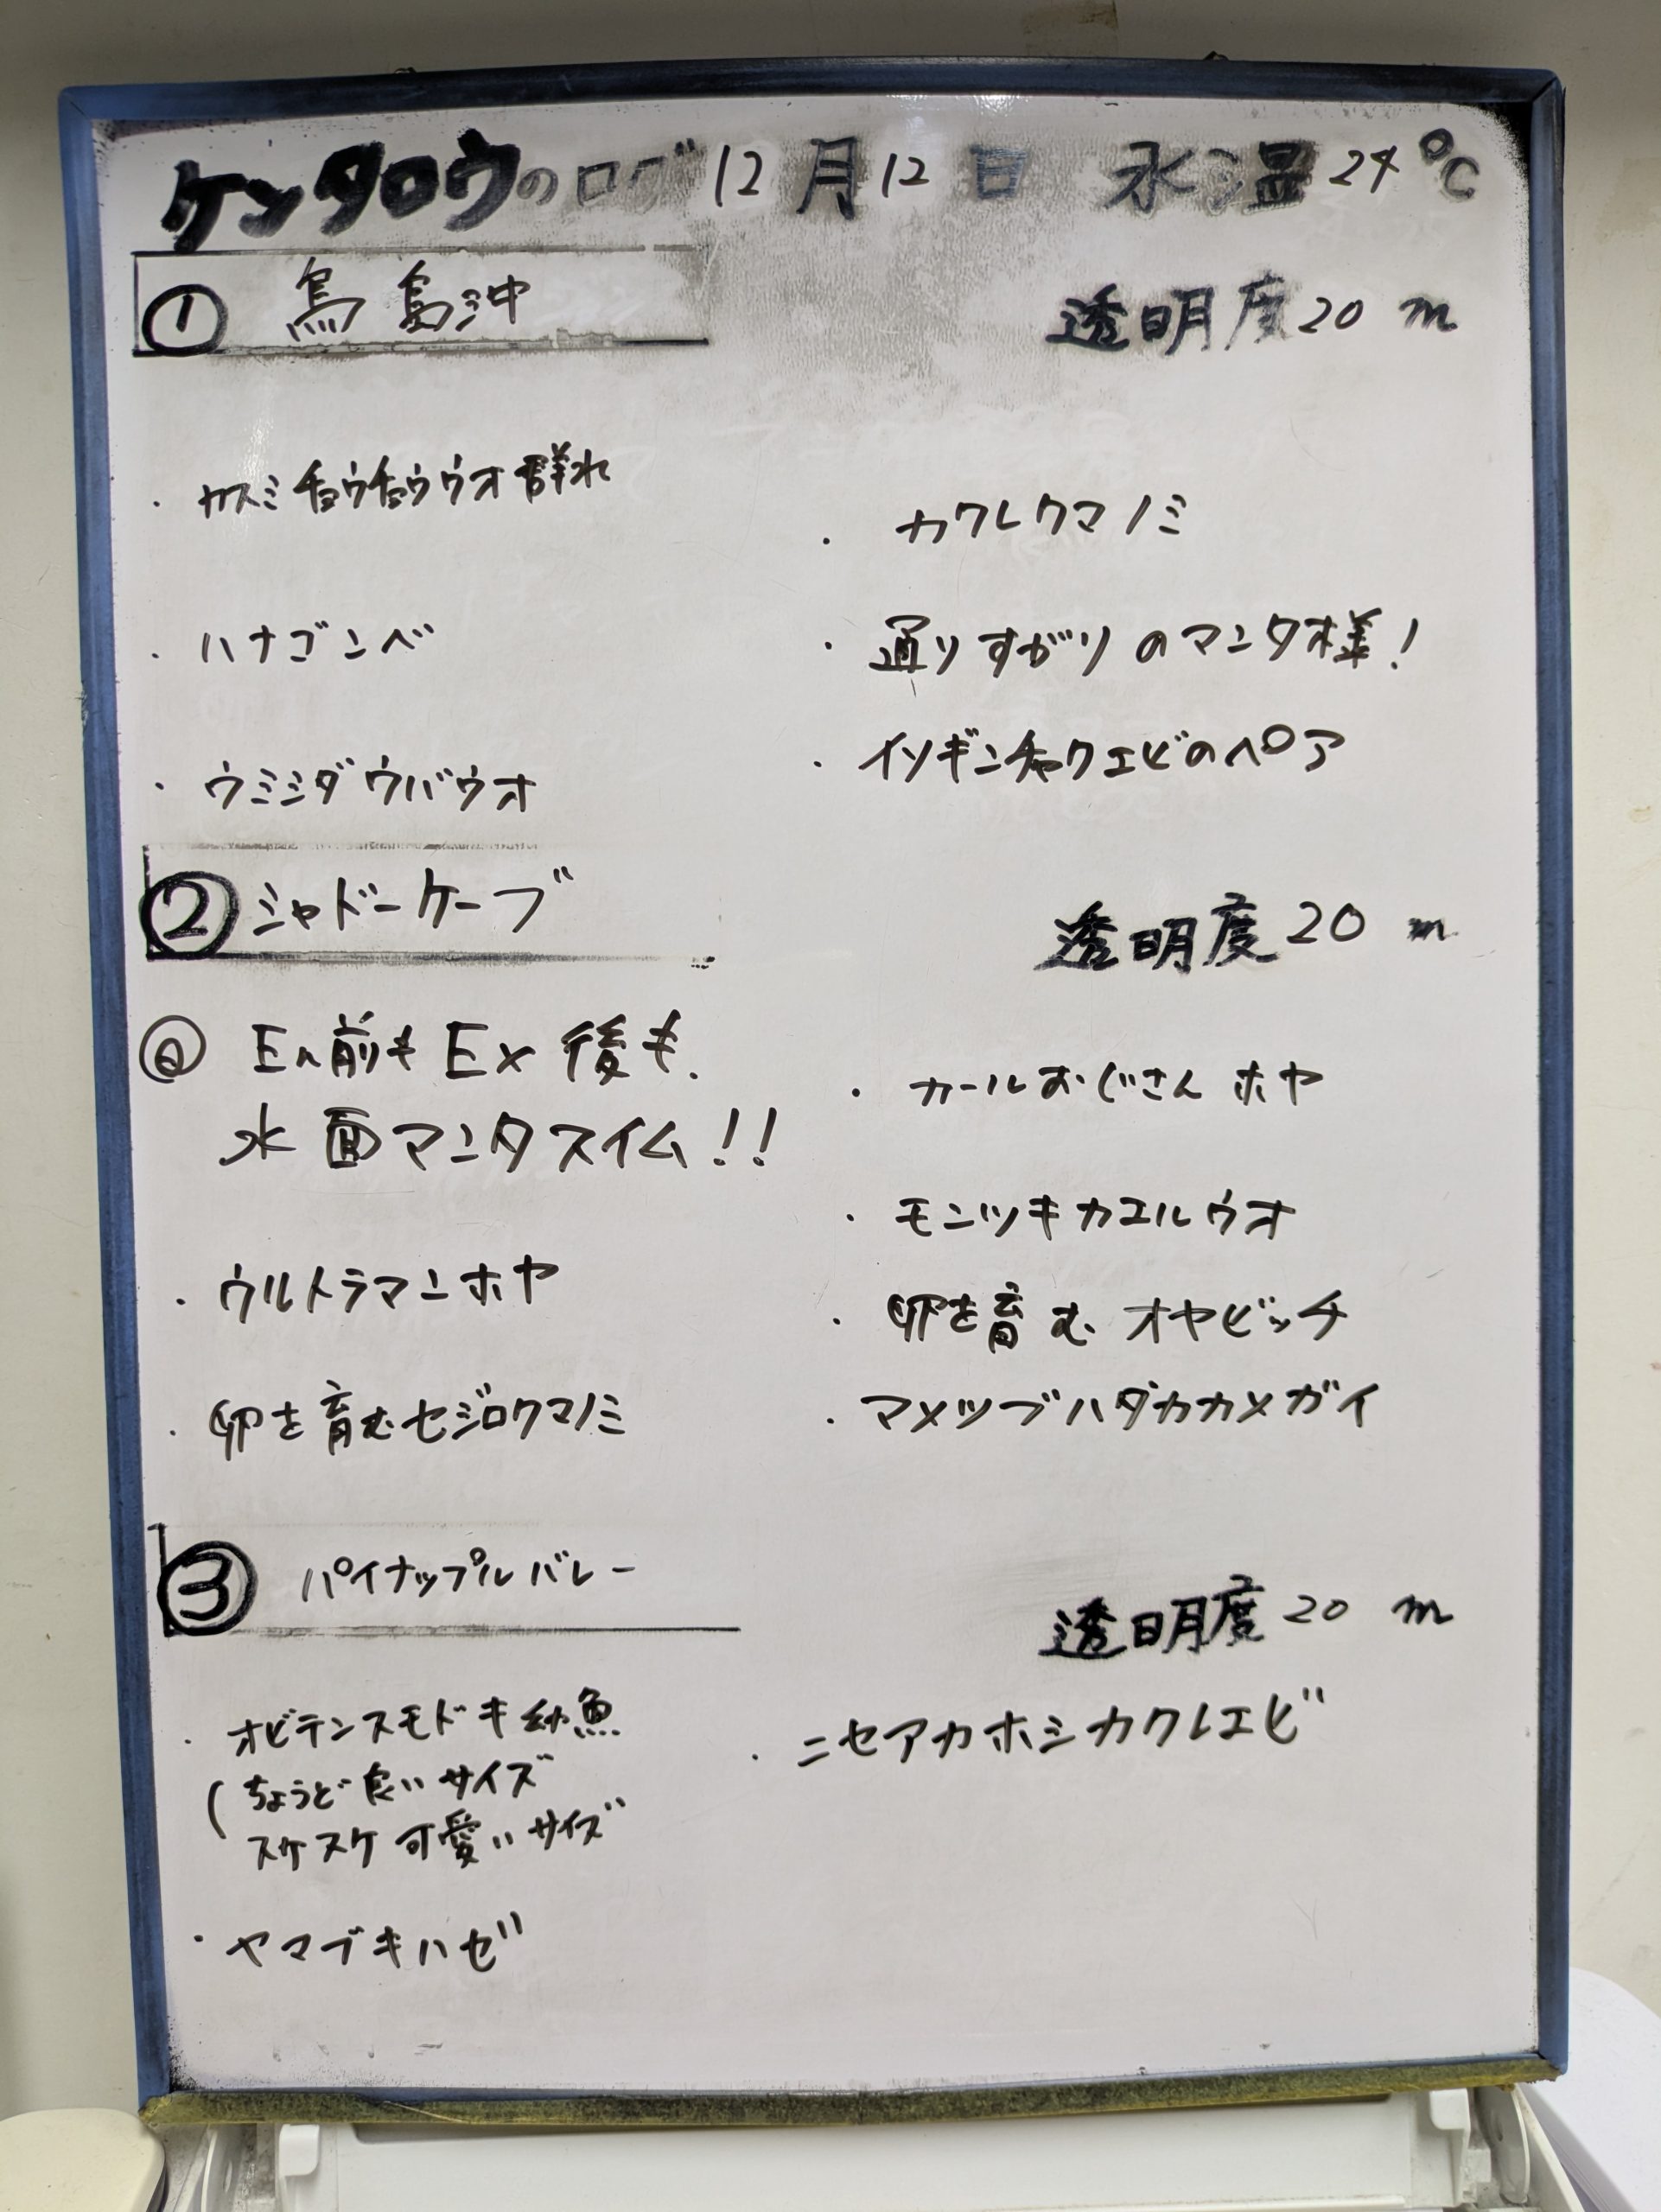 ケンタロウのログ 12月12日 水温24℃
① 鳥島沖 透明度20m
・カスミチョウチョウウオ群れ
・ハナゴンベ
・ウミシダウバウオ
・カクレクマノミ
・通りすがりのマンタ様!
・イソギンチャクエビのペア
② シャドーケーブ 透明度20m
@ En前も Ex後も.
水面マンタスイム!!
・ウルトラマンホヤ
・卵を育むセジロクマノミ
・カールおじさんホヤ
・モンツキカエルウオ
・卵を育むオヤビッチ
・マメツブハダカカメガイ
③ パイナップルバレー 透明度20m
・オビテンスモドキ幼魚
(ちょうど良いサイズ
スケスケ可愛いサイズ
・ヤマブキハゼ
・ニセアカホシカクレエビ